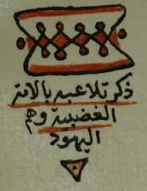 ذكر تلاعبه بالامة
الغضبية وهم
اليهود